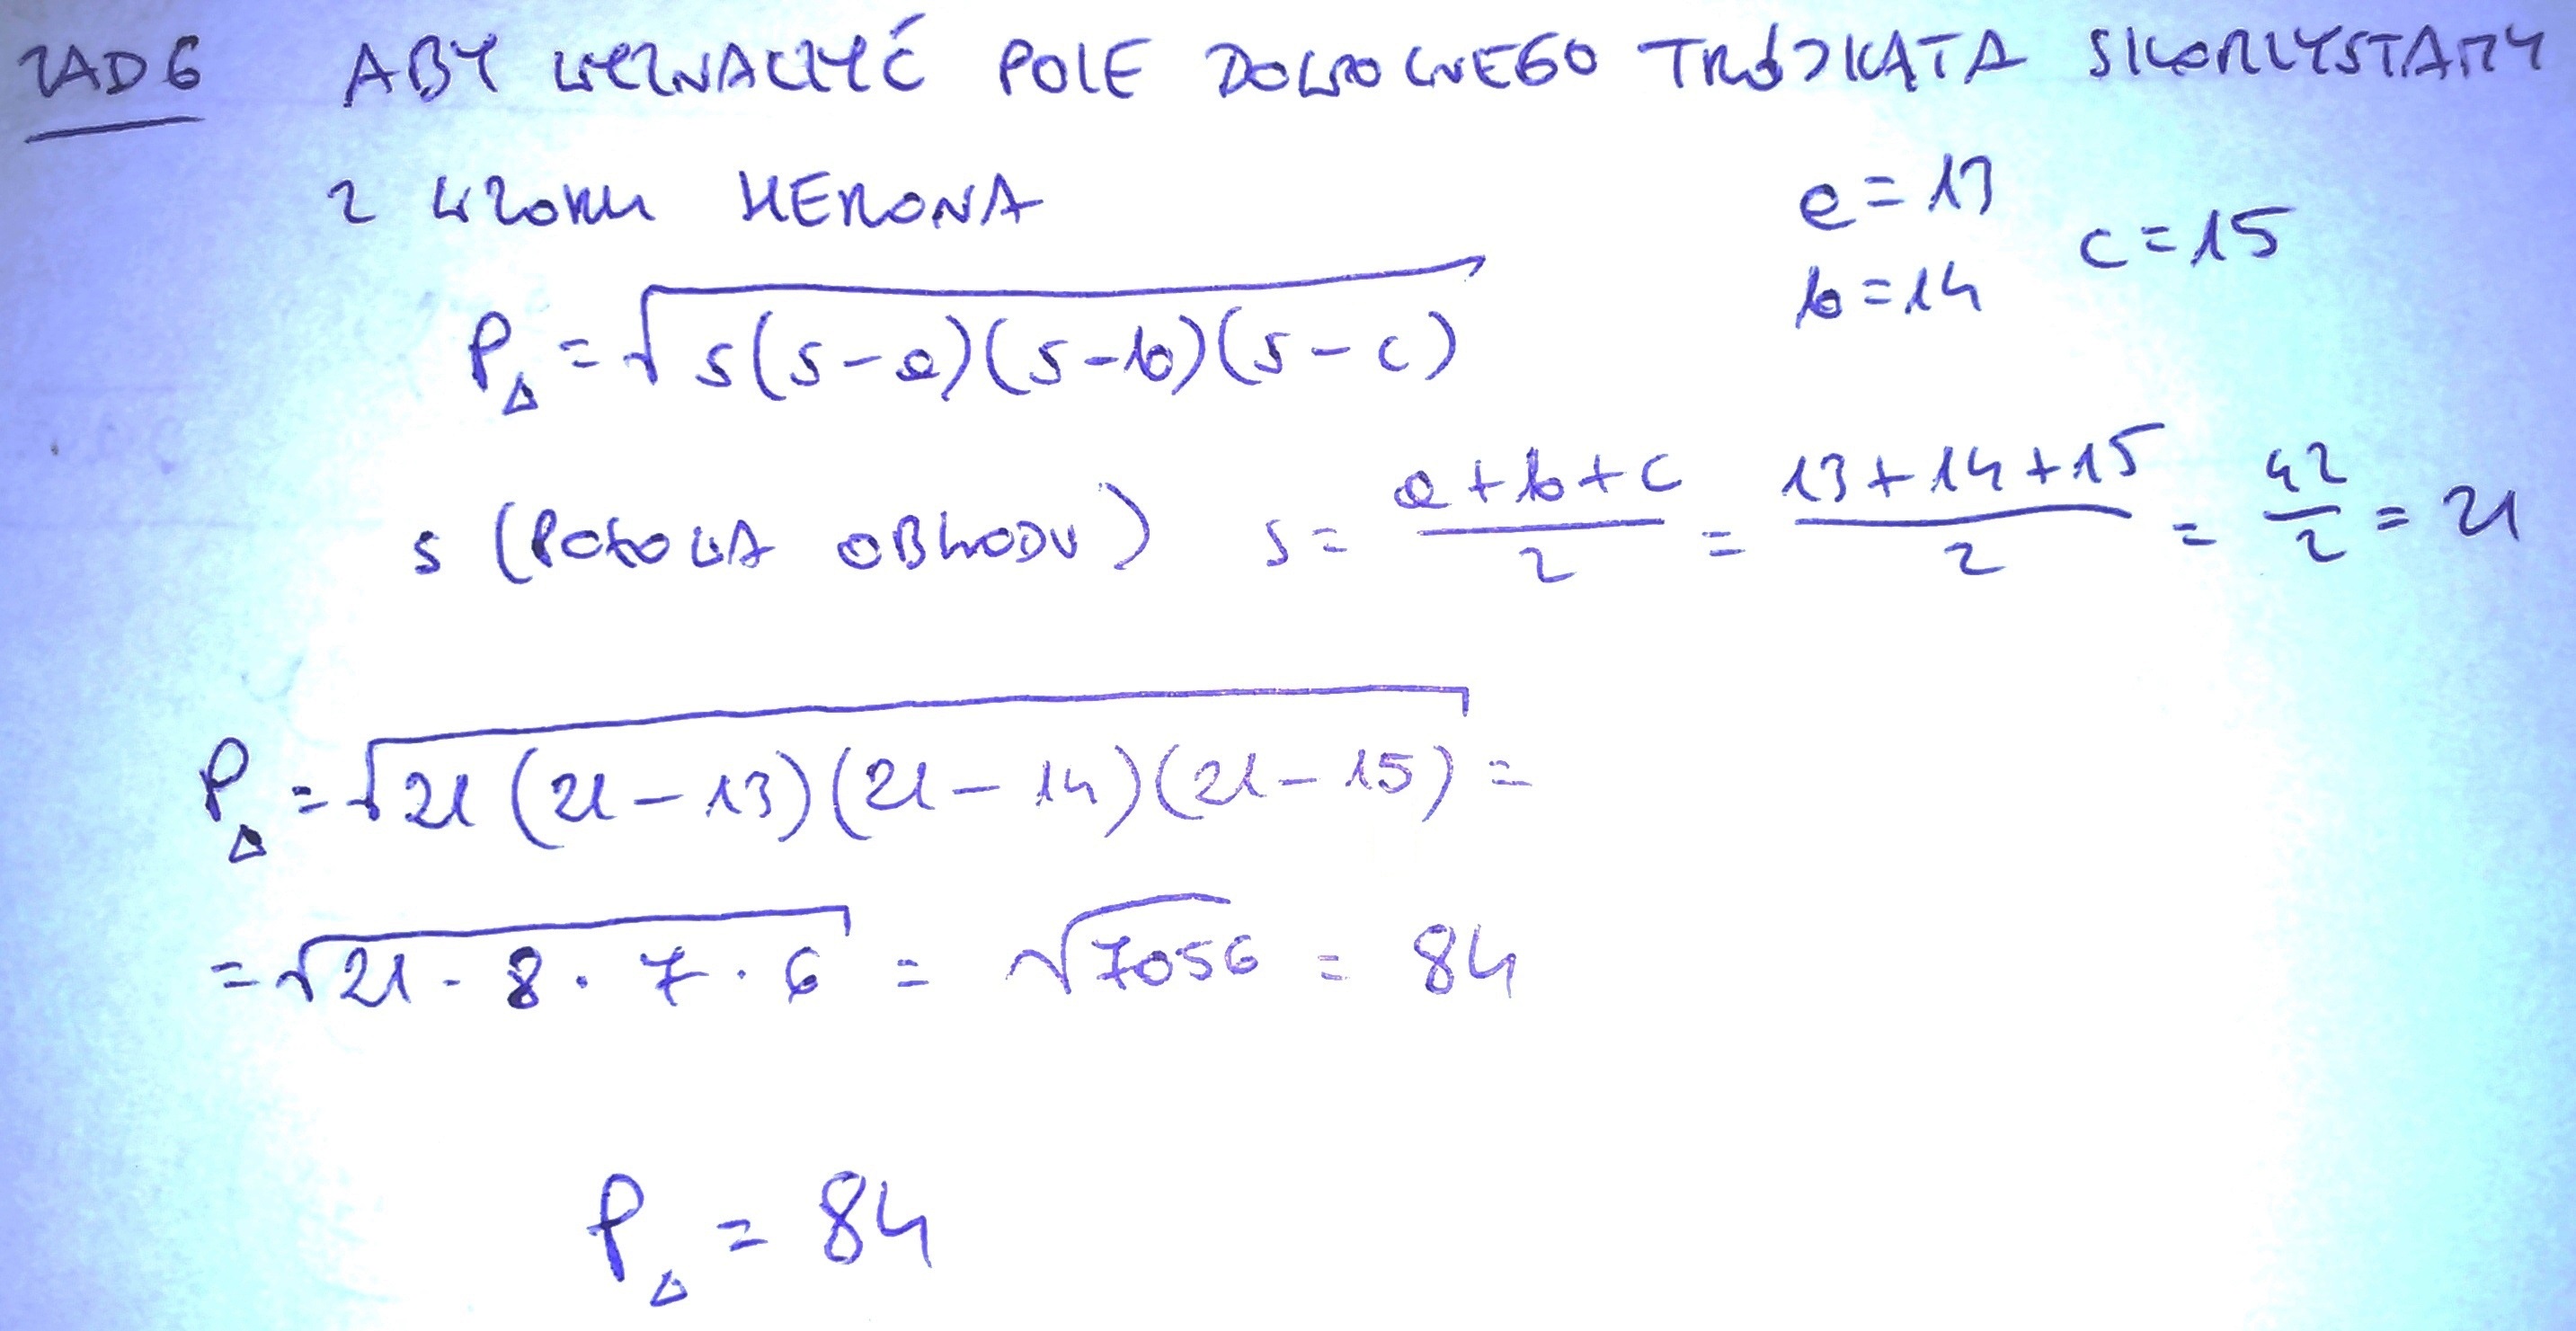 ZAD 6 ABY WYZNACZYĆ POLE DOWOLNEGO TRÓJKĄTA SKORZYSTAMY
Z WZORU HERONA
a = 13
b = 14 c = 15
P△ = √s(s-a)(s-b)(s-c)
s (POŁOWA OBWODU) s = (a+b+c)/2 = (13+14+15)/2 = 42/2 = 21
P△ = √21(21-13)(21-14)(21-15) =
= √21·8·7·6 = √7056 = 84
P△ = 84